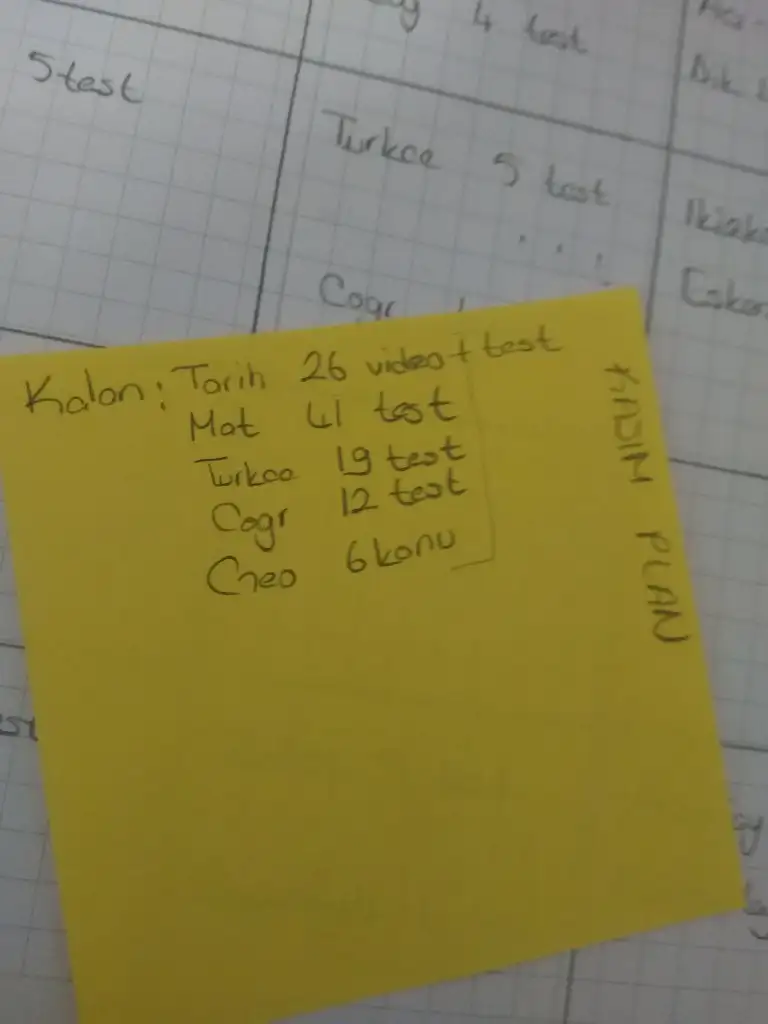 4 test
5 test
Turkce 5 test
Cogr
Kalan: Tarih 26 video + test
Mat 41 test
Turkce 19 test
Cogr 12 test
Geo 6 konu
KADIM PLAN